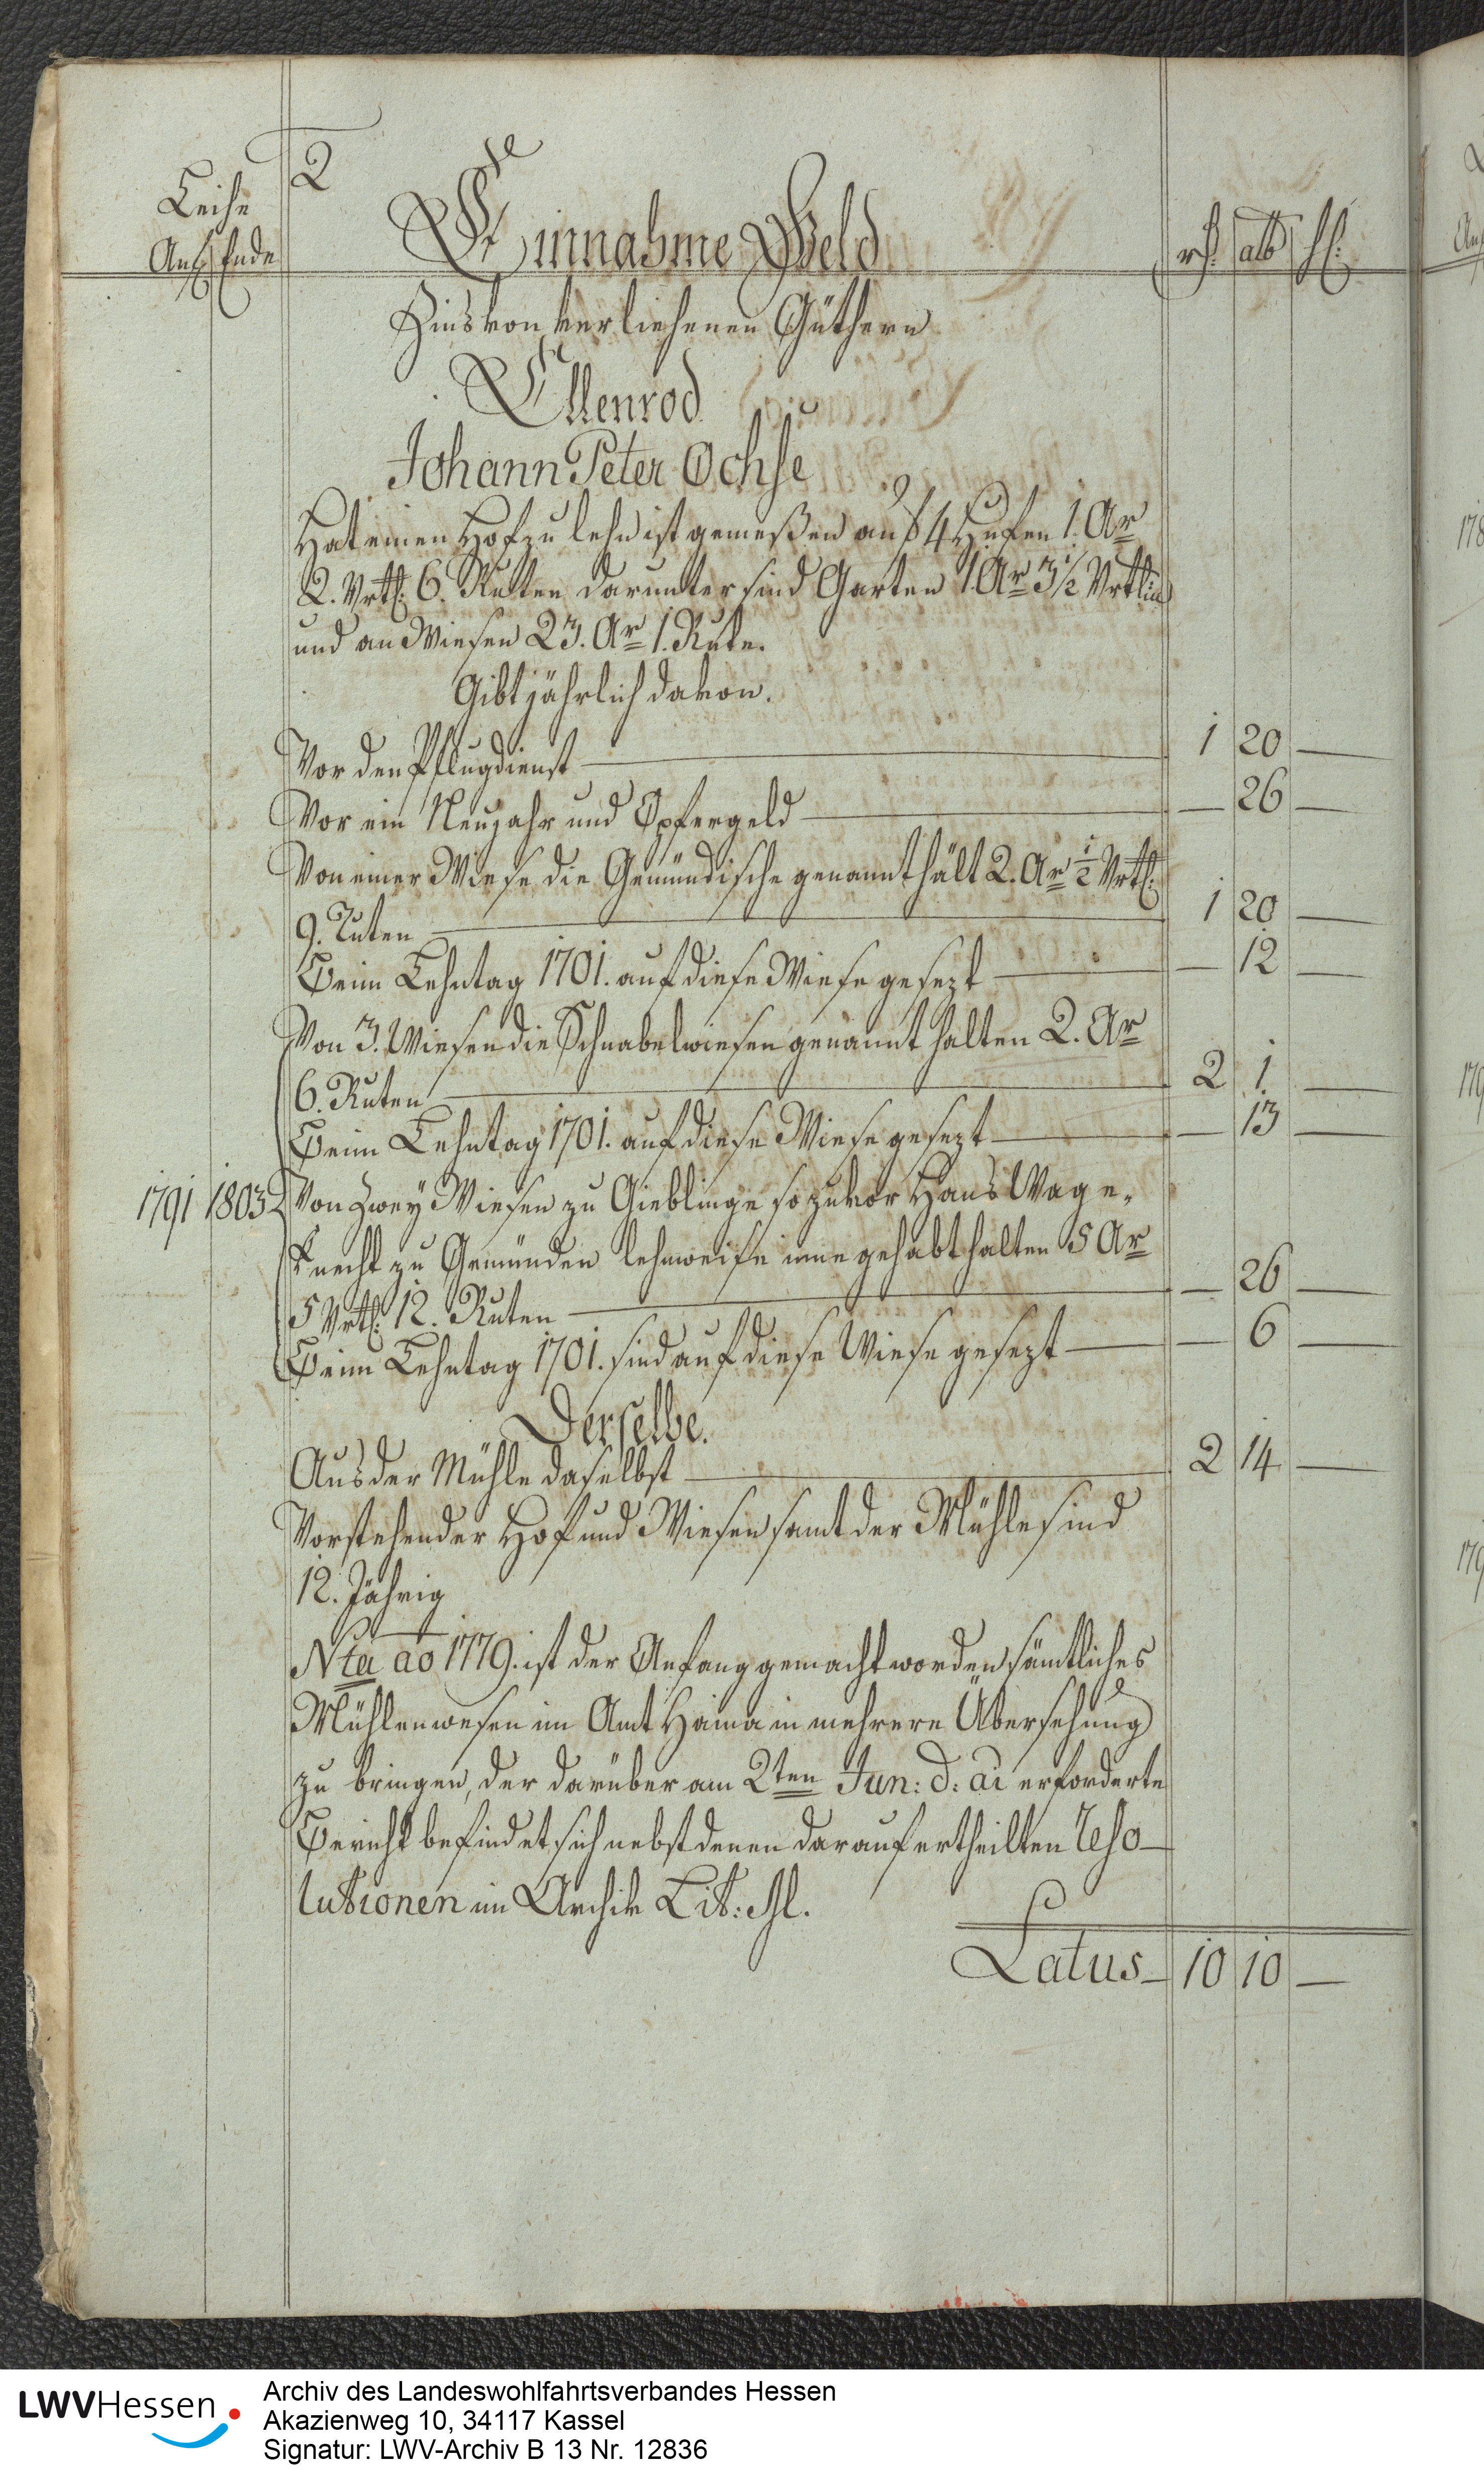 2
Leihe
Anf. Ende
Einnahme Geld
rh. alb hl.
Zins von verliehenen Güthern
Ellenrod
Johann Peter Ochse
Hat einen Hof zu lehn ist gemeßen auf 4 Hufen 1. Ar
2. Vrtl. 6. Ruten darunter sind Garten 1 Ar 3 1/2 Vrtlin
und an Wiesen 23. Ar 1. Rute.
Gibt jährlich davon.
Vor den Pflugdienst — 1 20 —
Vor ein Neujahr und Opfergeld — — 26 —
Von einer Wiese die Gemündische genannt hält 2. Ar 1/2 Vrtl.
9. Ruten — 1 20 —
Beim Lehntag 1701. auf diese Wiese gesezt — — 12 —
Von 3. Wiesen die Schnabelwiesen genannt halten 2. Ar
6. Ruten — 2 1 —
Beim Lehntag 1701. auf diese Wiese gesezt — — 13 —
1791 1803 Von Zwey Wiesen zu Gieblinge so zuvor Hans Wage-
knecht zu Gemünden lehnweise inne gehabt halten 5 Ar
5 Vrtl: 12. Ruten — — 26 —
Beim Lehntag 1701. sind auf diese Wiese gesezt — — 6 —
Derselbe.
Aus der Mühle daselbst — 2 14 —
Vorstehender Hof und Wiesen samt der Mühle sind
12. Jährig
Nta ao 1779. ist der Anfang gemacht worden sämtliches
Mühlenwesen im Amt Haina in mehrere Übersehung
zu bringen, der darüber am 2ten Jun: d: ai erforderte
Bericht befindet sich nebst denen darauf ertheilten Reso-
lutionen im Archiv Lit: M.
Latus — 10 10 —
LWVHessen
Archiv des Landeswohlfahrtsverbandes Hessen
Akazienweg 10, 34117 Kassel
Signatur: LWV-Archiv B 13 Nr. 12836